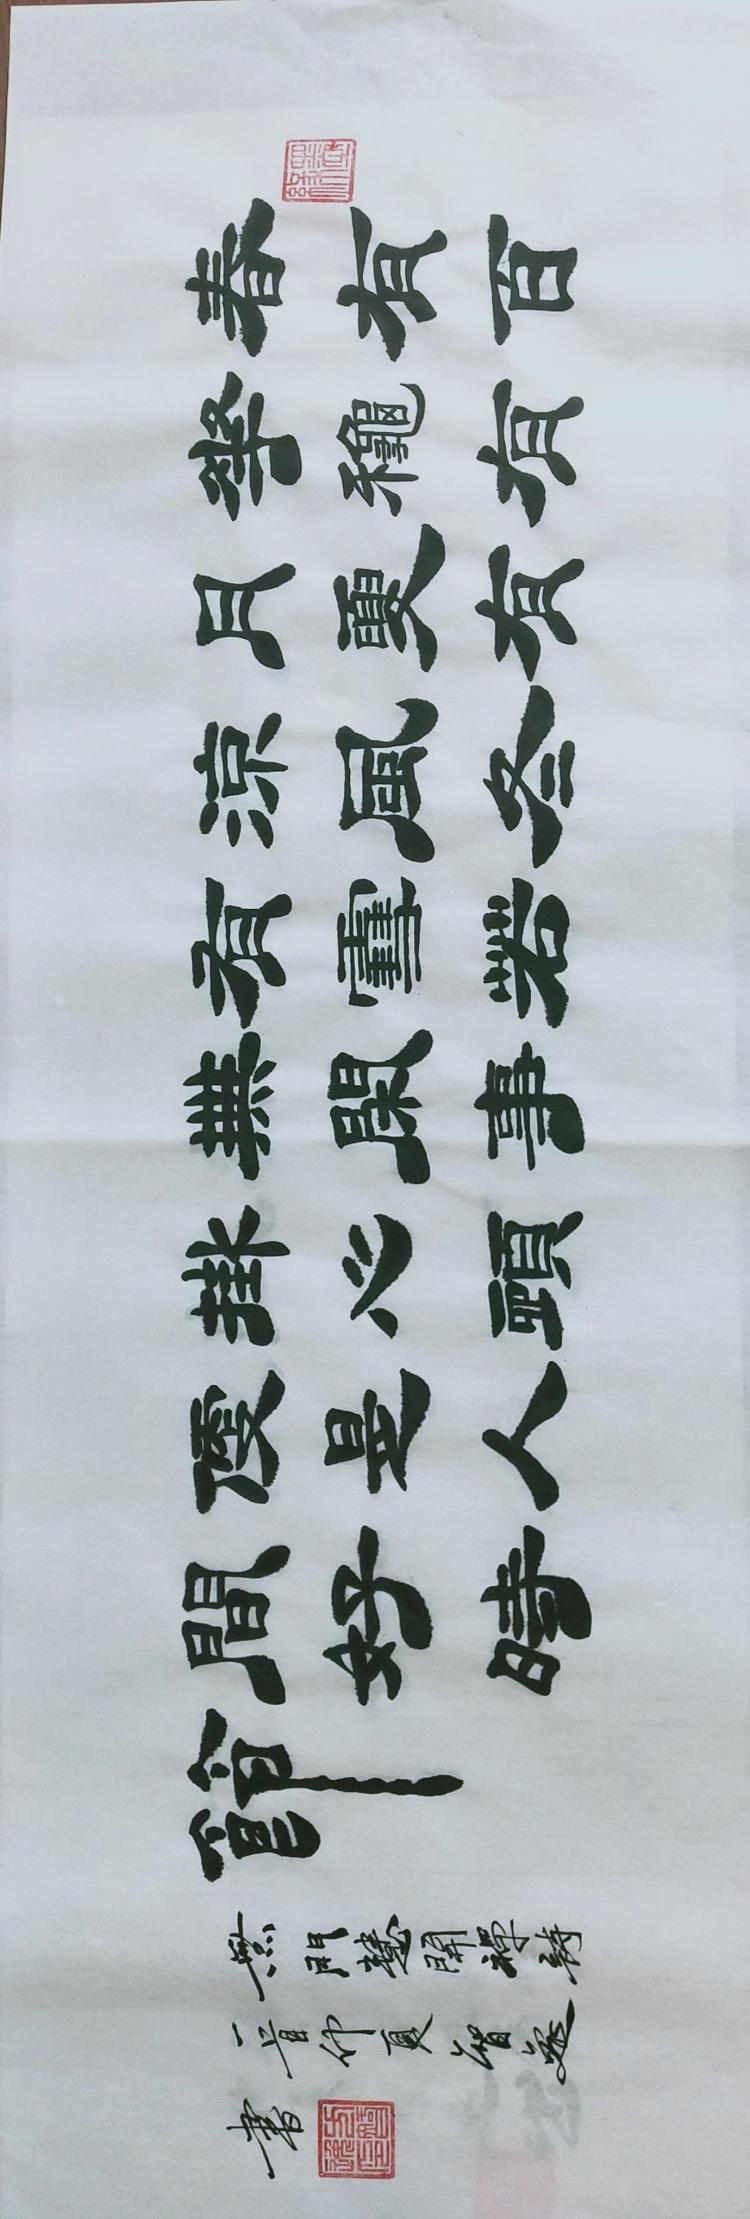 春有百
華龝有
月夏有
涼風冬
有雪若
無閑事
掛心頭
便是人
間好時
節
無門慧開禪詩
一首仲夏
書